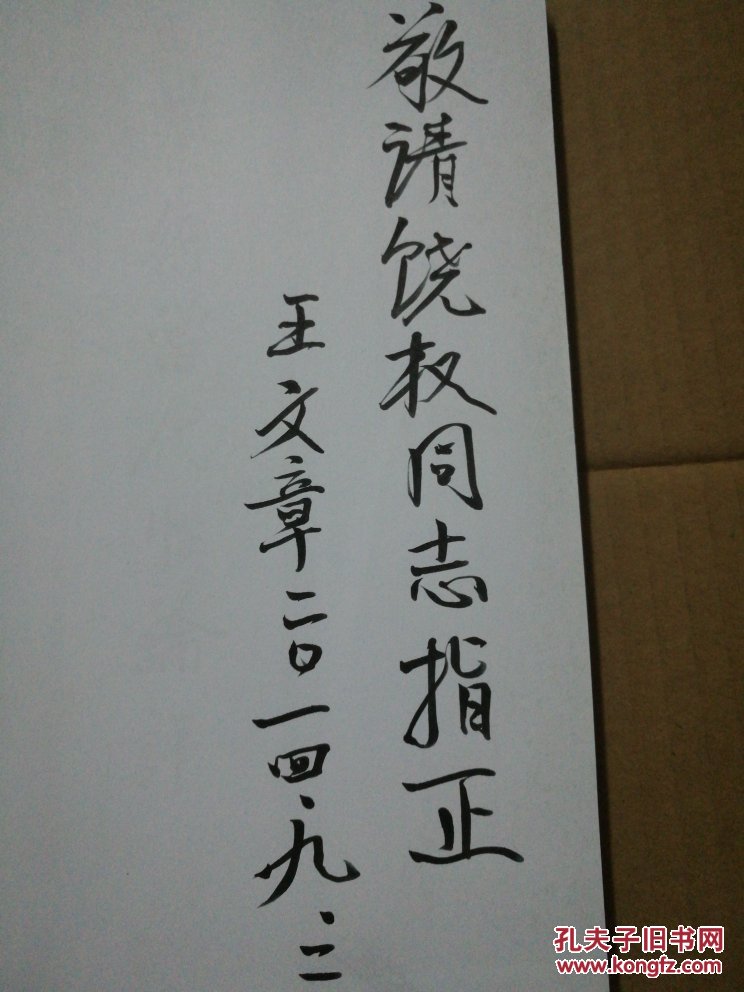 敬请饶权同志指正
王文章二〇一四、九、二
孔夫子旧书网
www.kongfz.com